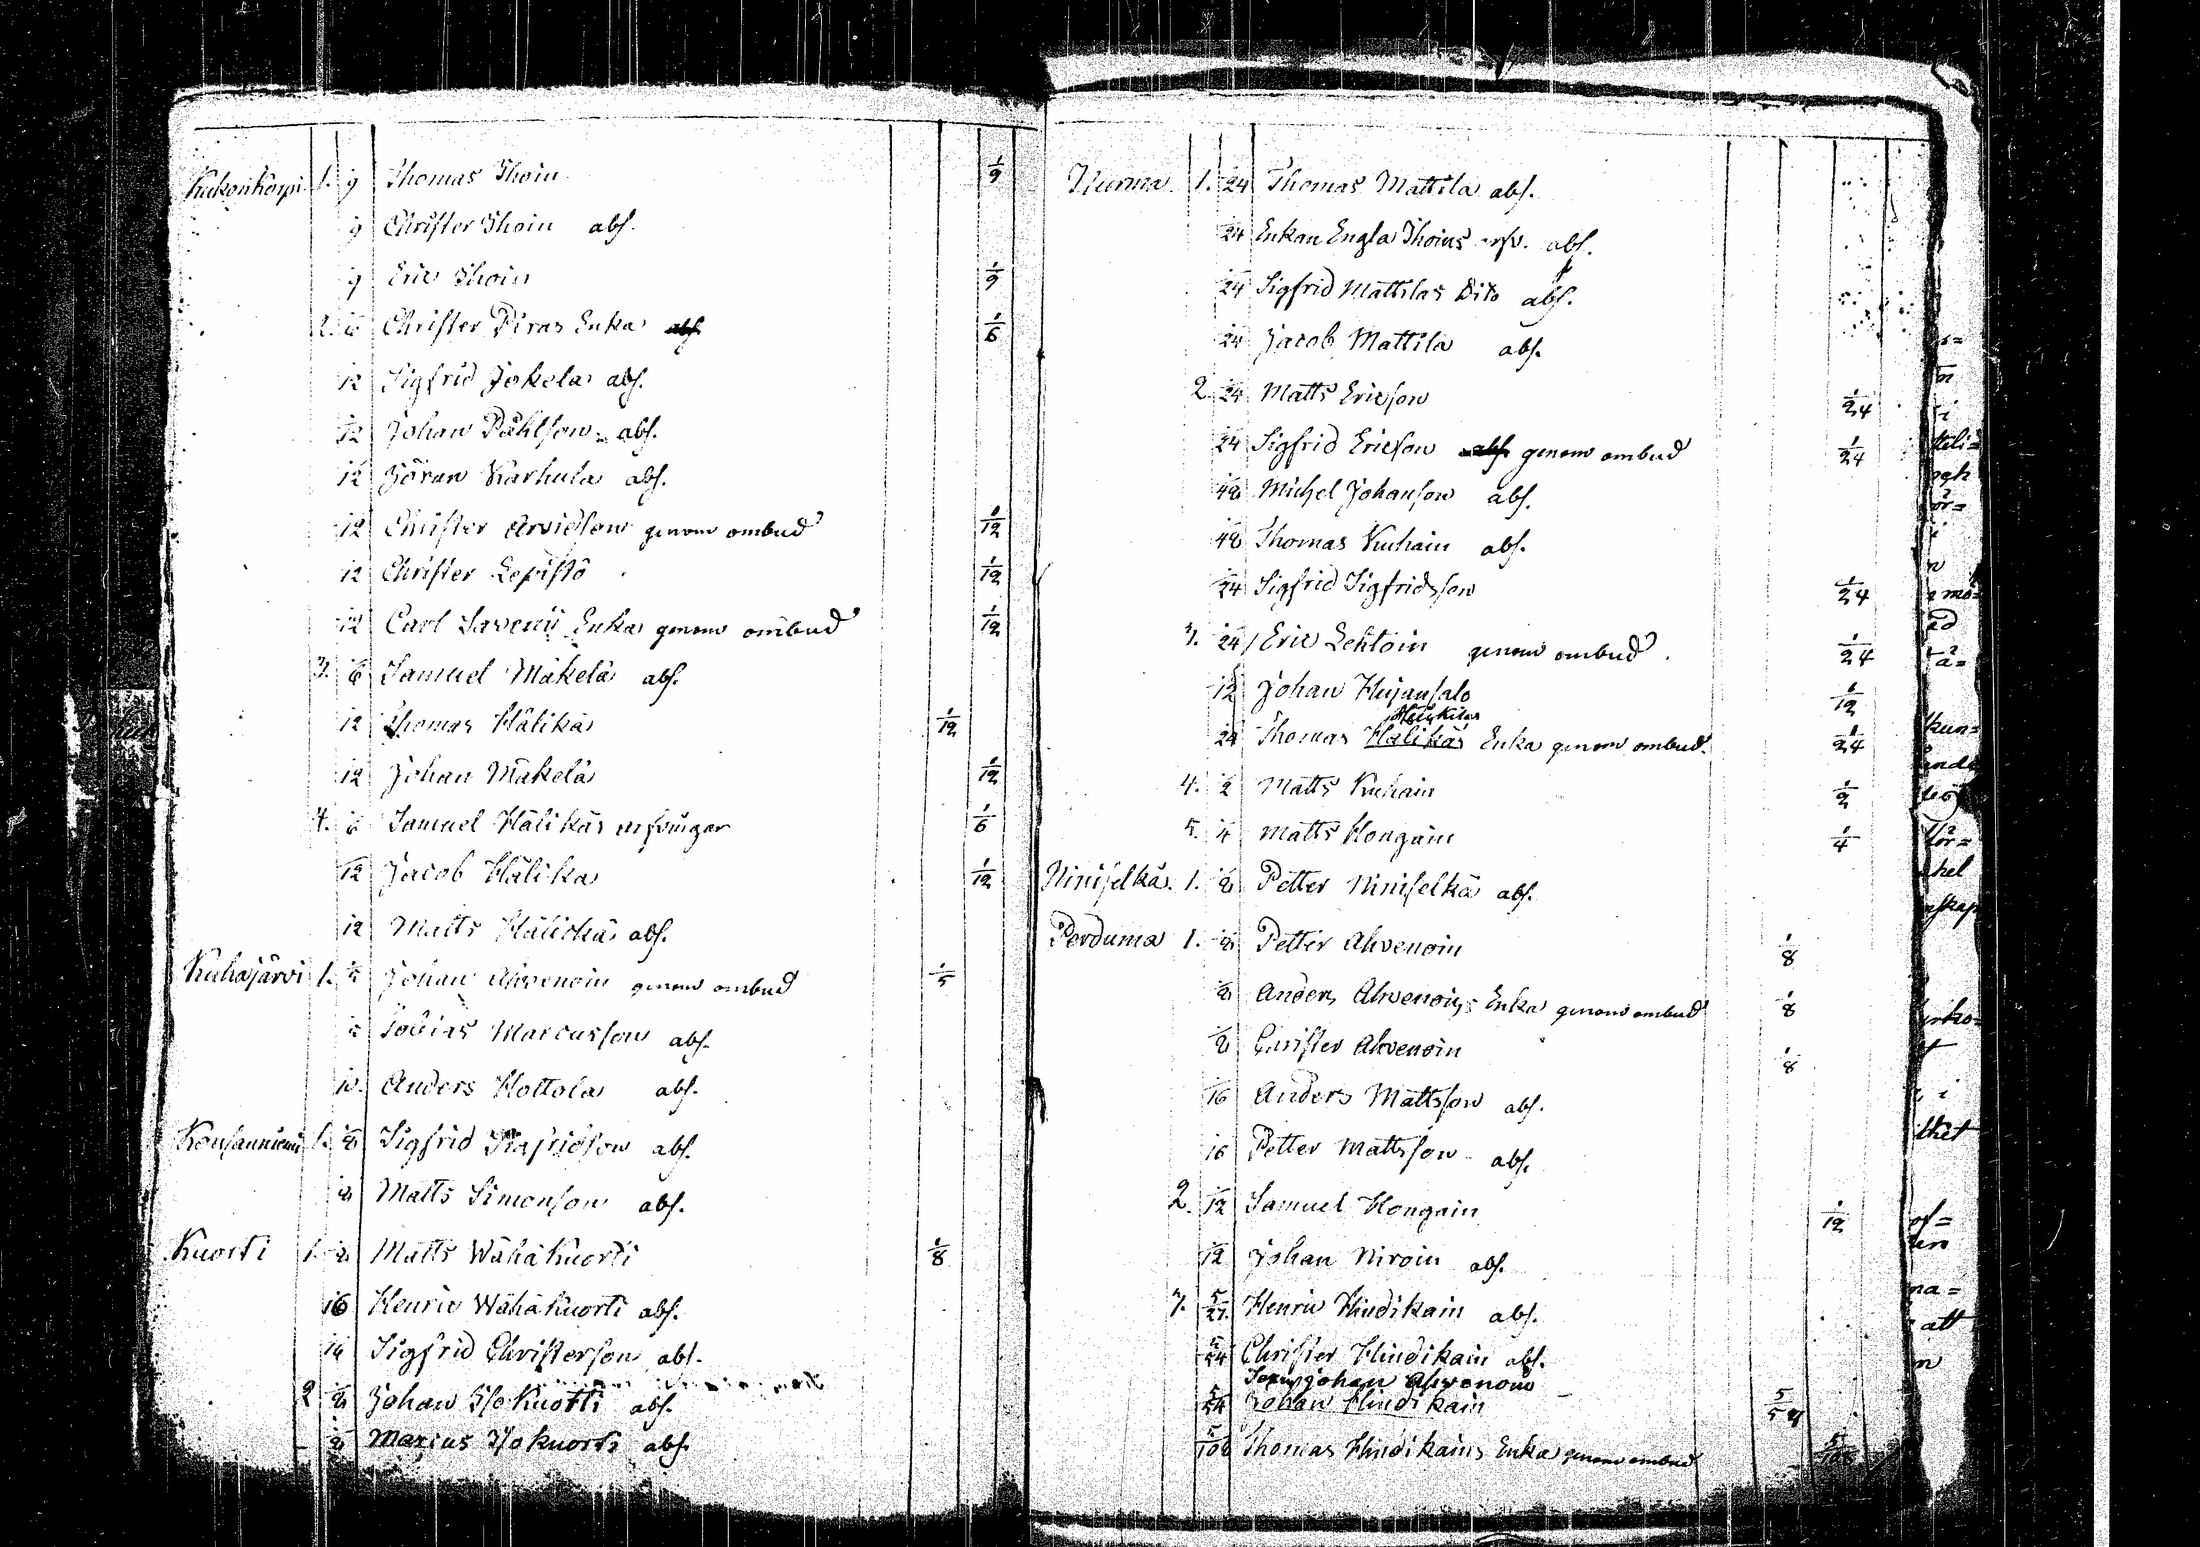 Kukonkorpi 1. 9 Thomas Thoin 1/9
9 Christer Thoin abs.
9 Eric Thoin 1/9
2. 6 Christer Piras Enka abs 1/6
12 Sigfrid Jokela abs.
12 Johan Påhlson abs.
12 Jöran Karhula abs.
12 Christer Arvidson genom ombud 1/12
12 Christer Lepistö 1/12
12 Carl Savenii Enka genom ombud 1/12
3. 6 Samuel Mäkelä abs.
12 Thomas Hälikä 1/12
12 Johan Mäkelä 1/12
4. 6 Samuel Hälikäs arfvingar 1/6
12 Jacob Hälikä 1/12
12 Matts Hälickä abs.
Kuhajärvi 1. 5 Johan Ahvenoin genom ombud 1/5
5 Tobias Marcusson abs.
10. Anders Hottola abs.
1. 8 Sigfrid abs.
8 Matts Simonson abs.
Kuorti 1. 8 Matts Wähäkuorti 1/8
16 Henric Wähäkuorti abs.
16 Sigfrid Christerson abs.
2 8 Johan Isokuorti abs.
8 Isokuorti abs.
Nurma 1. 24 Thomas Mattila abs.
24 Enkan Engla Thoins arfv. abs.
24 Sigfrid Mattilas Dito abs.
24 Jacob Mattila abs.
2 24 Matts Ericson 1/24
24 Sigfrid Ericson abs genom ombud 1/24
48 Michel Johanson abs.
48 Thomas Kuhain abs.
24 Sigfrid Sigfridsson 1/24
3. 24 Eric Lehtoin genom ombud 1/24
12 Johan Hujansalo 1/12
24 Thomas Hälikäs Enka genom ombud. 1/24
4. 2 Matts Kuhain 1/2
5. 4 Matts Hongain 1/4
Niniselkä. 1. 8 Petter Niniselkä abs.
Perduma 1. 8 Petter Ahvenoin 1/8
8 Anders Ahvenoins Enka genom ombud 1/8
8 Christer Ahvenoin 1/8
16 Anders Mattsson abs.
16 Petter Mattsson abs.
2. 12 Samuel Hongain 1/12
12 Johan Niroin abs.
3. 5/27. Henric Hindikain abs.
5/54 Christer Hindikain abs.
Johan Ahvenoin
5/54 Johan Hindikain 5/54
5/108 Thomas Hindikains Enka genom ombud 5/108